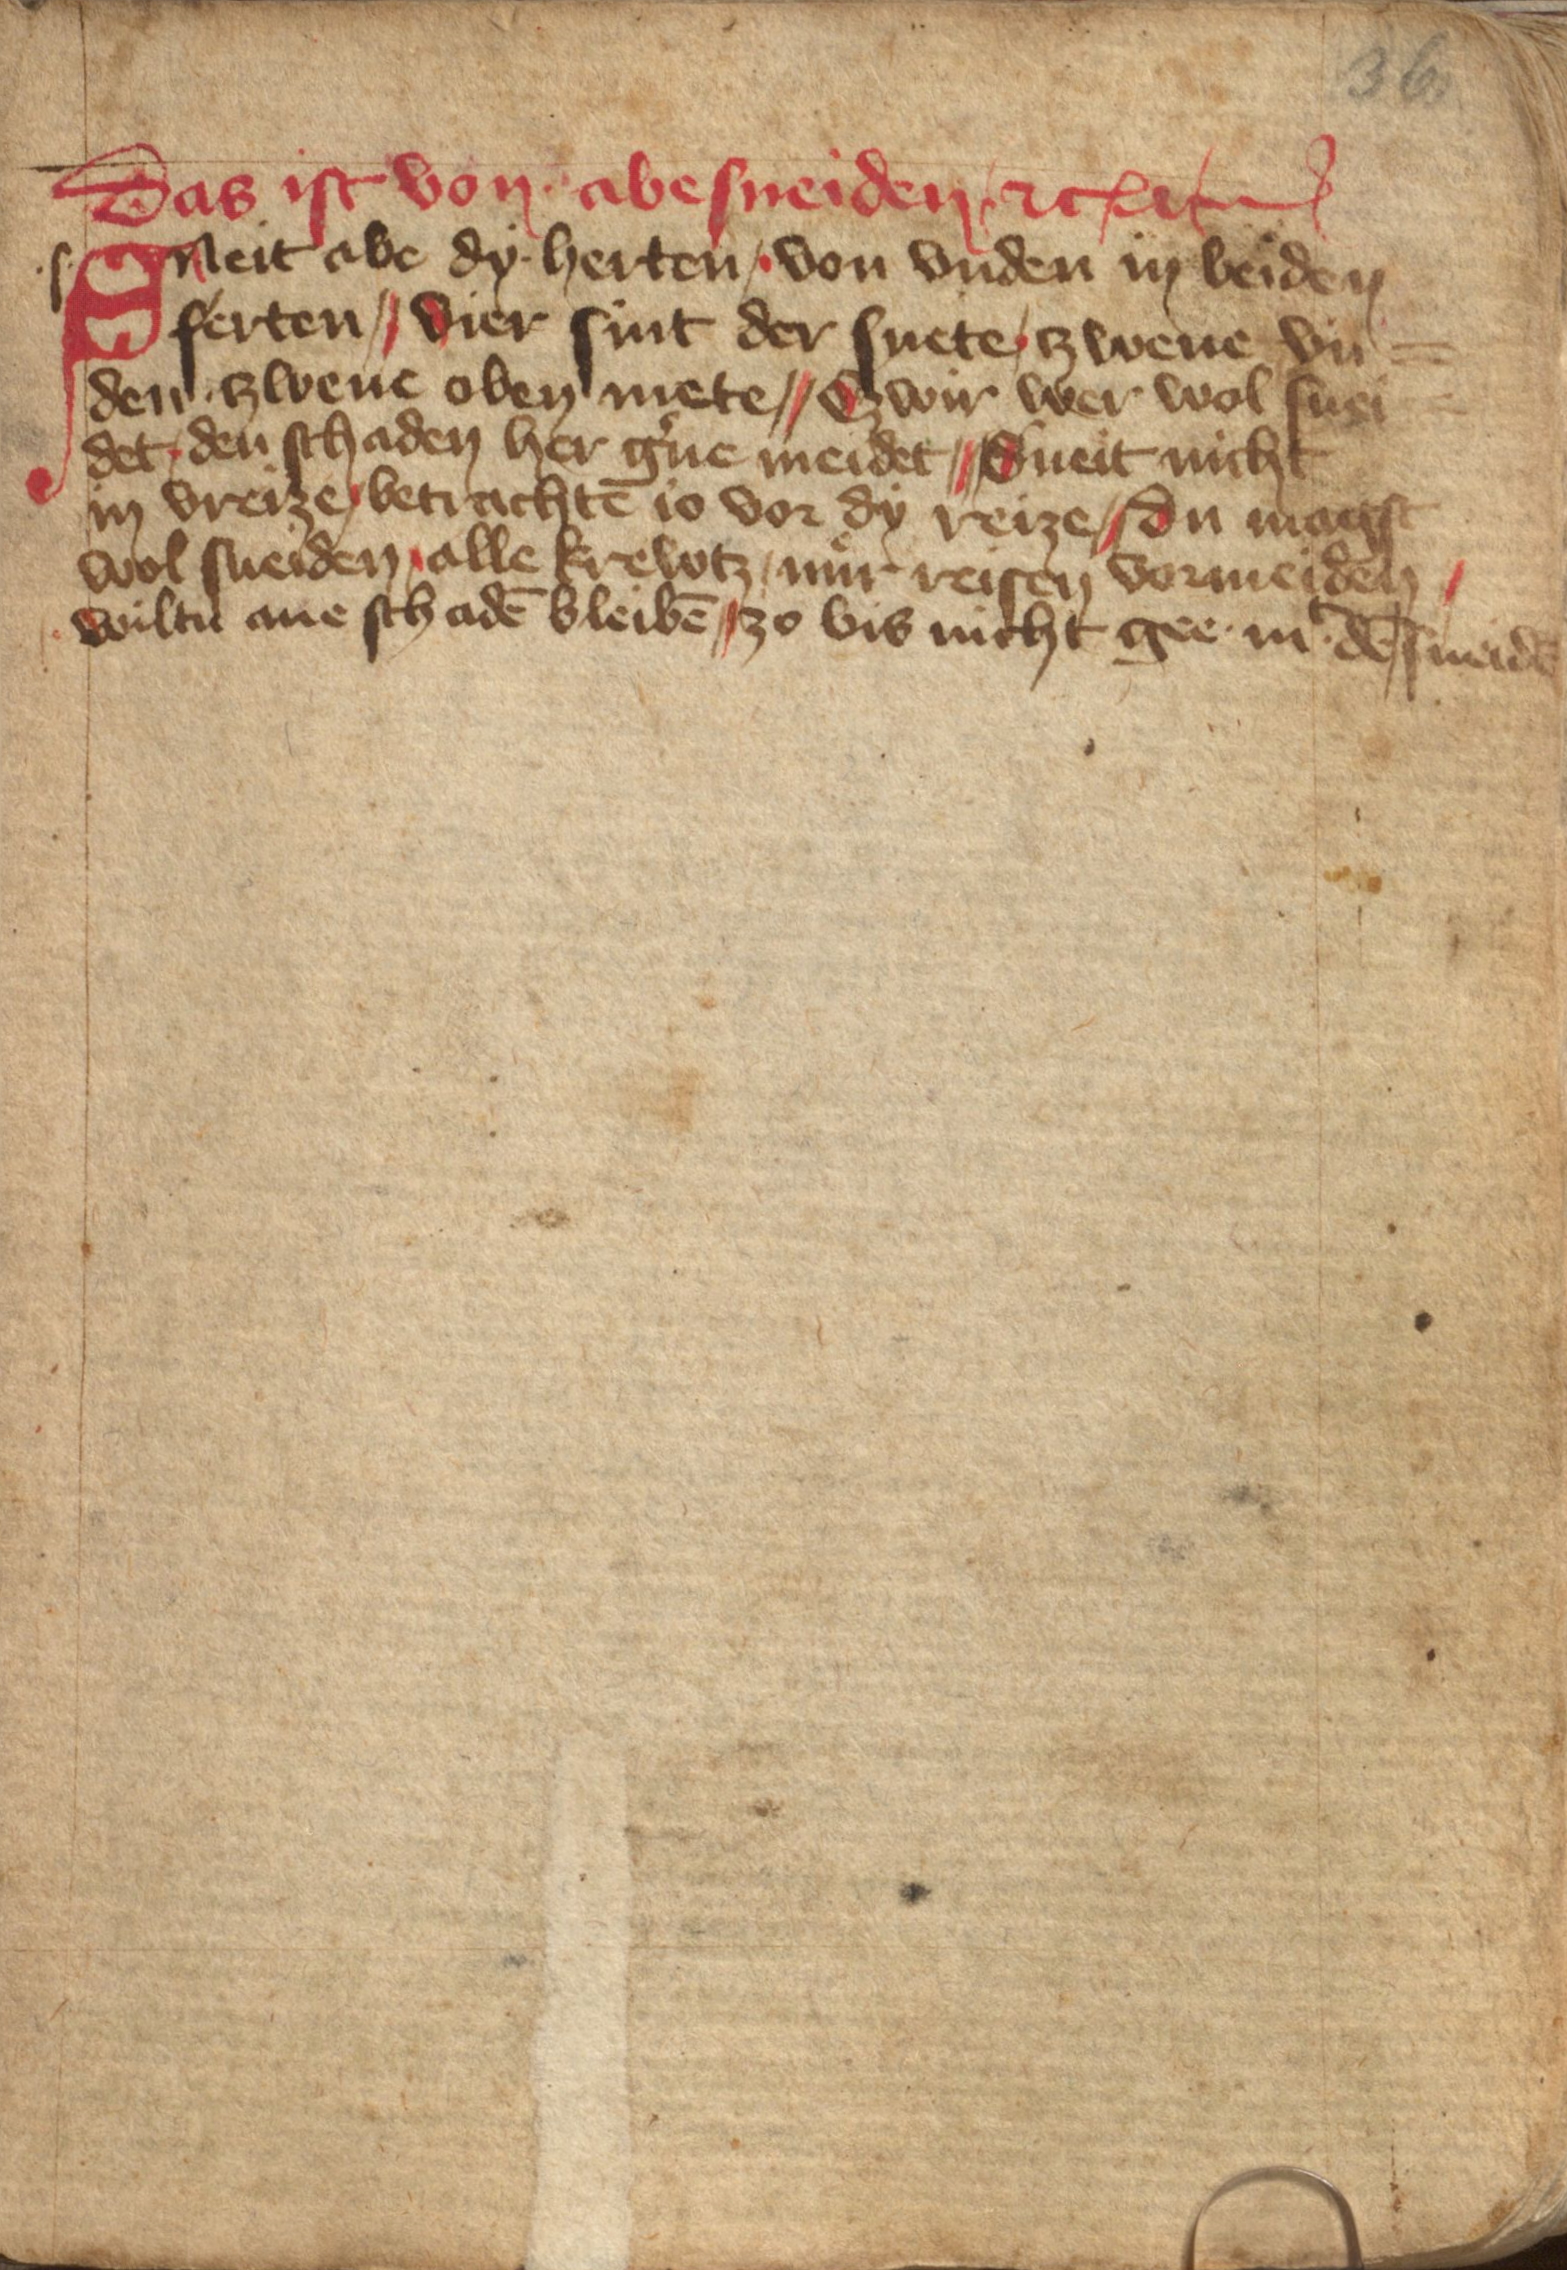 36
Das ist von · abesneiden / ꝛc
·s· Sneit abe dy · herten / von vnden in beiden
ferten // Vier sint der snete / tzwene vn=
den · tzwene oben mete // Tzwir wer wol snei=
det / den schaden her gͤne meidet // Sneit nicht
in vreize / betrachtē io vor dy reize // du magst
wol sneiden / alle krewtz / nuͤr reisen vormeiden /
wiltu ane schadē bleibē // zo bis nicht gee · mͭ · dē sneidē